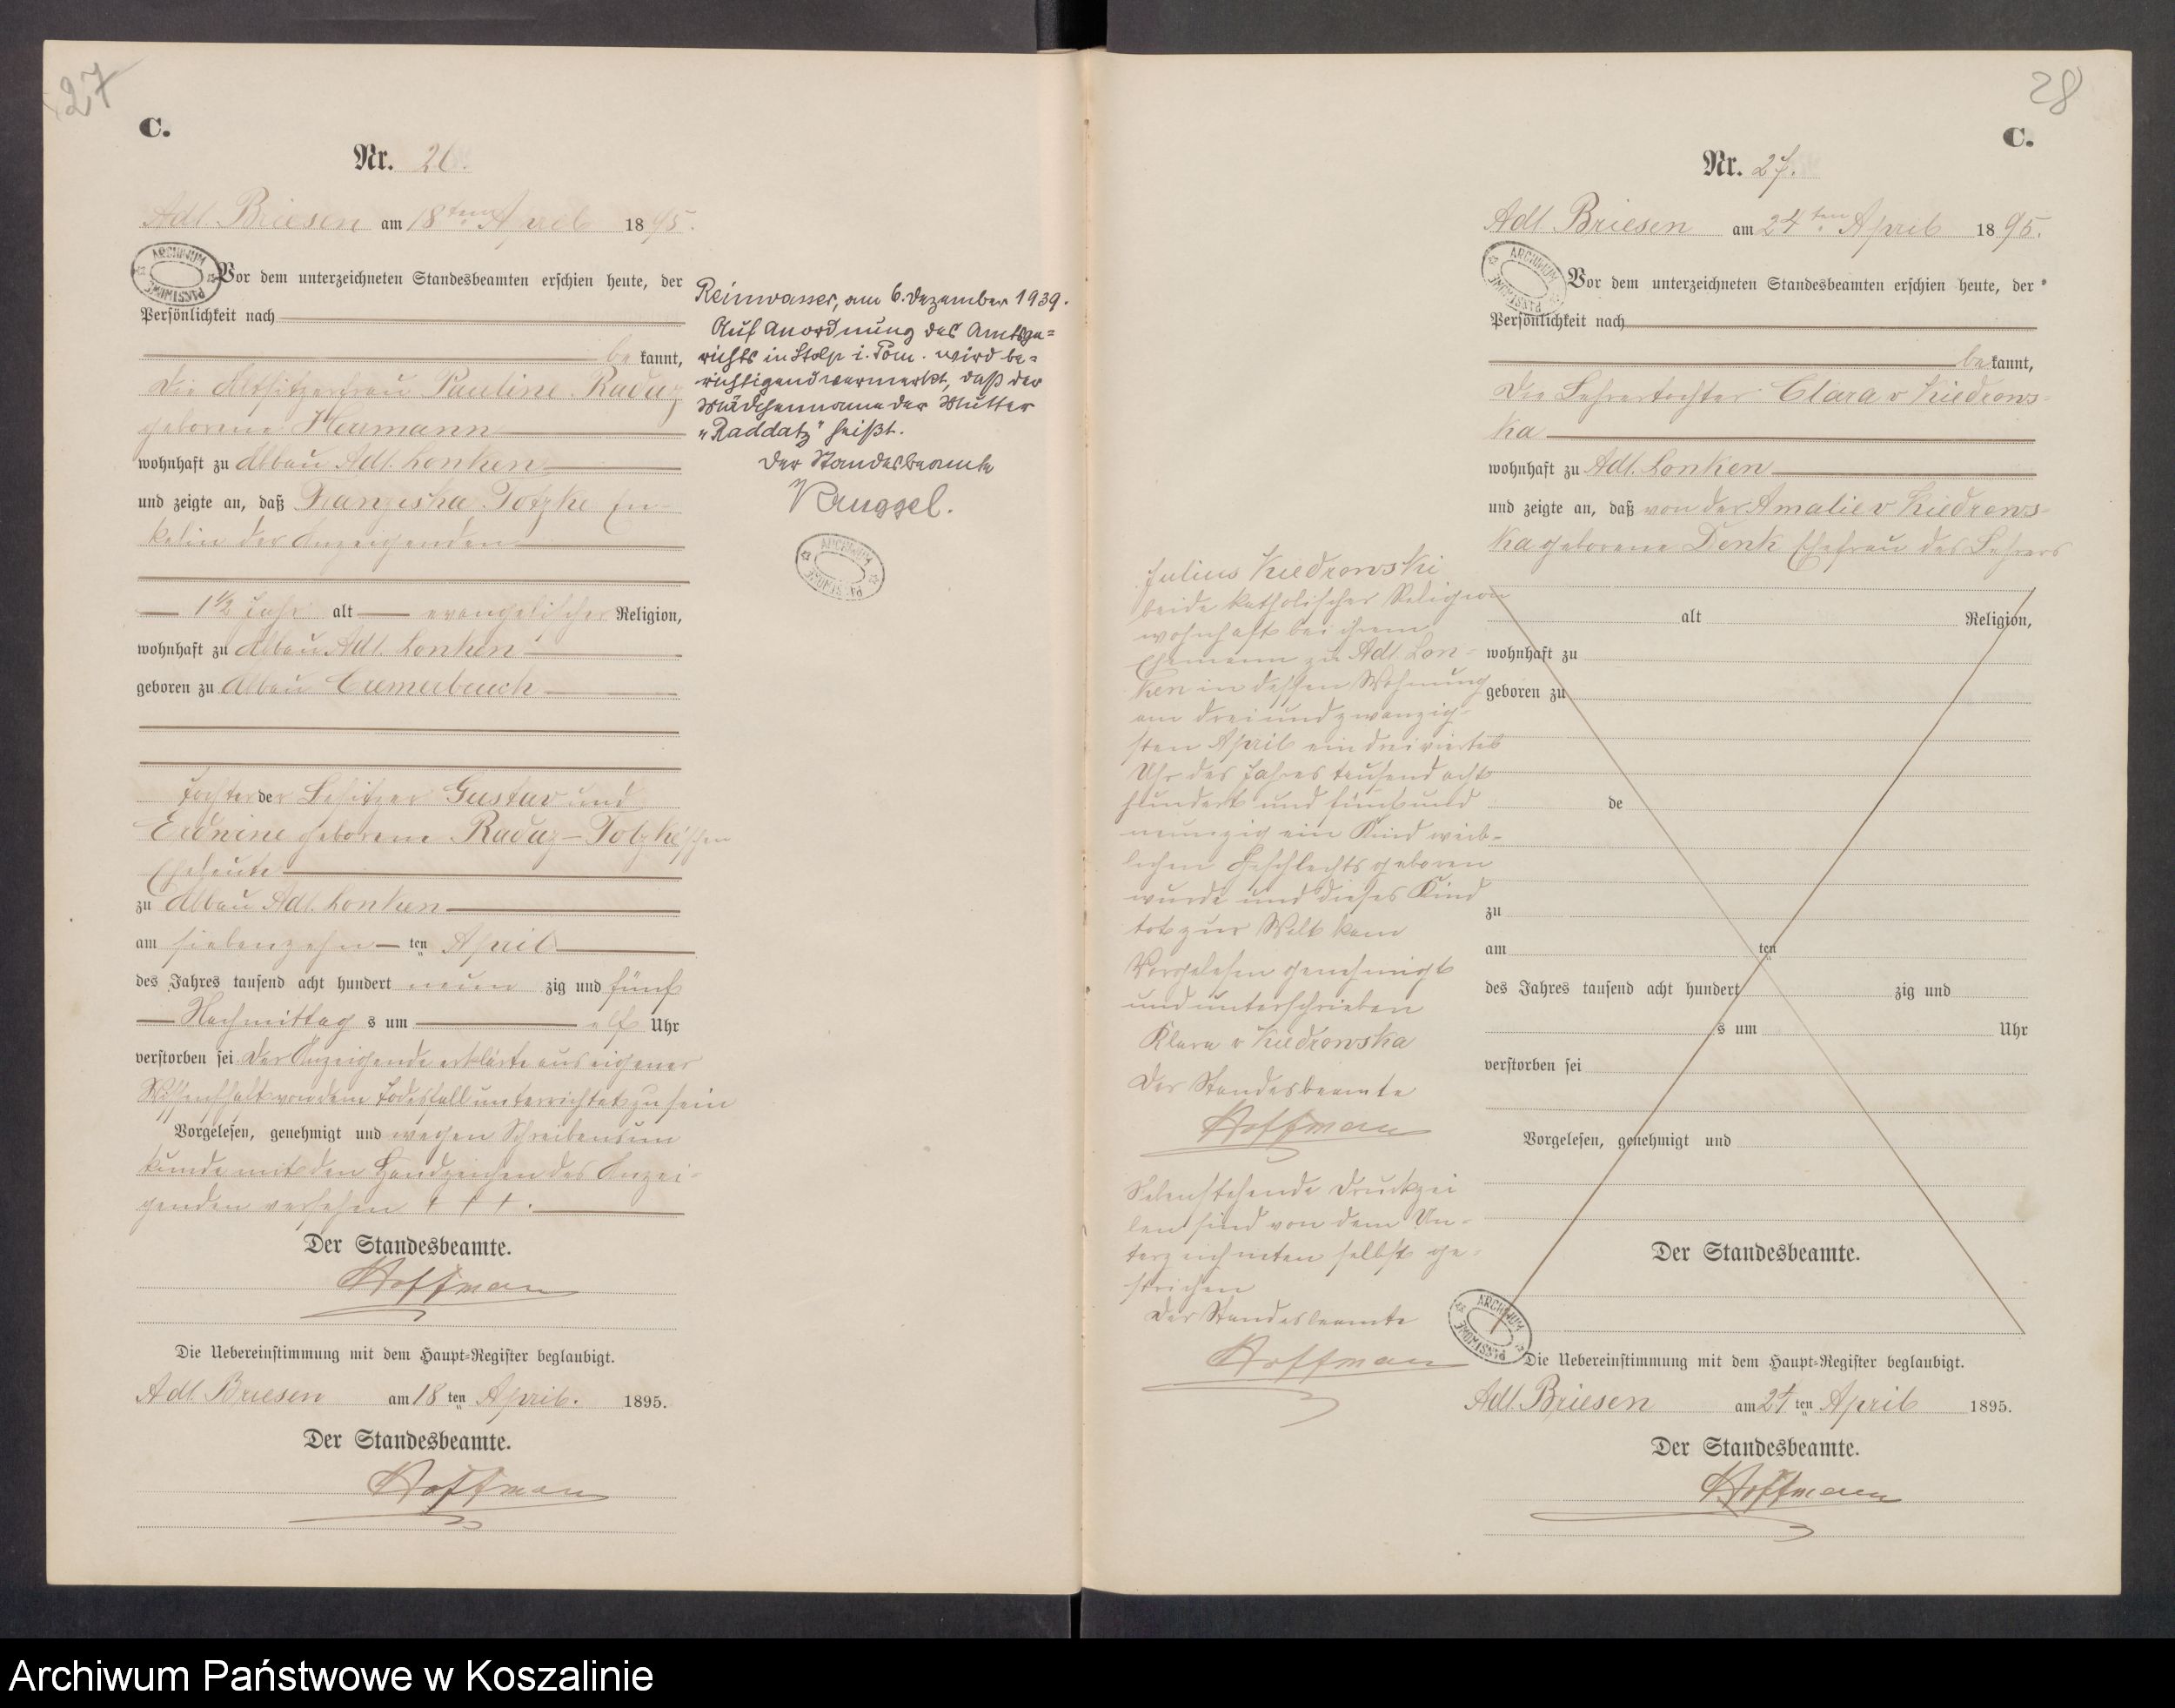 27
C.
Nr. 26.
Adl. Briesen am 18ten April 1895.
ARCHIWUM PAŃSTWOWE
Vor dem unterzeichneten Standesbeamten erschien heute, der
Persönlichkeit nach
be kannt,
die Altsitzerfrau Pauline Raduz
geborene Hermann
wohnhaft zu Abbau Adl. Lonken
und zeigte an, daß Franziska Totzke En-
kelin der Anzeigenden
1 1/2 Jahr alt evangelischer Religion,
wohnhaft zu Abbau Adl. Lonken
geboren zu Abbau Cremerbruch
Tochter der Besitzer Gustav und
geborene Raduz-Totzke'schen
Eheleute
zu Abbau Adl. Lonken
am siebenzehn ten April
des Jahres tausend acht hundert neun zig und fünf
Nachmittag s um elf Uhr
verstorben sei. Der Anzeigende erklärte aus eigener
Wissenschaft von dem Todesfall unterrichtet zu sein
Vorgelesen, genehmigt und wegen Schreibensun
kunde mit den Handzeichen des Anzei-
genden versehen + + +.
Der Standesbeamte.
Hoffmann
Die Uebereinstimmung mit dem Haupt-Register beglaubigt.
Adl. Briesen am 18ten April. 1895.
Der Standesbeamte.
Hoffmann
Reinwasser, am 6. Dezember 1939.
Auf Anordnung des Amtsge=
richts in Stolp i. Pom. wird be=
richtigend vermerkt, daß der
Mädchenname der Mutter
„Raddatz" heißt.
Der Standesbeamte
ARCHIWUM PAŃSTWOWE
28
C.
Nr. 27.
Adl. Briesen am 24ten April 1895.
ARCHIWUM PAŃSTWOWE
Vor dem unterzeichneten Standesbeamten erschien heute, der
Persönlichkeit nach
be kannt,
die Lehrertochter Clara v Kiedrows-
ka
wohnhaft zu Adl. Lonken
und zeigte an, daß von der Amalie v Kiedrows-
ka geborene Denk Ehefrau des Lehrers
Julius Kiedrowski
beide katholischer Religion
wohnhaft bei ihrem
Ehemann zu Adl. Lon-
ken in dessen Wohnung
am dreiundzwanzig-
sten April ein dreiviertel
Uhr des Jahres tausend acht
hundert und fünfund
neunzig ein Kind weib-
lichen Geschlechts geboren
wurde und dieses Kind
tot zur Welt kam
Vorgelesen genehmigt
und unterschrieben
Klara v Kiedrowska
Der Standesbeamte
Hoffmann
Nebenstehende Druckzei
len sind von dem Un-
terzeichneten selbst ge-
strichen
Der Standesbeamte
Hoffmann
alt Religion,
wohnhaft zu
geboren zu
de
zu
am ten
des Jahres tausend acht hundert zig und
s um Uhr
verstorben sei
Vorgelesen, genehmigt und
Der Standesbeamte.
ARCHIWUM PAŃSTWOWE
Die Uebereinstimmung mit dem Haupt-Register beglaubigt.
Adl. Briesen am 24ten April 1895.
Der Standesbeamte.
Hoffmann
Archiwum Państwowe w Koszalinie